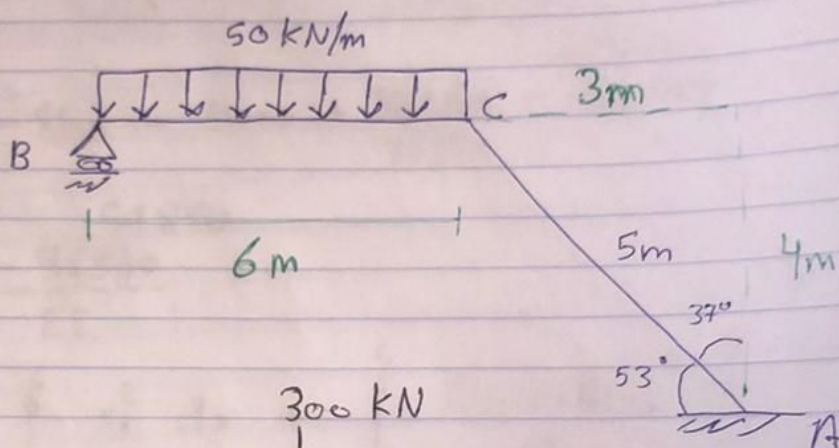 50 KN/m
C
3m
B
6m
5m
4m
37°
53°
300 KN